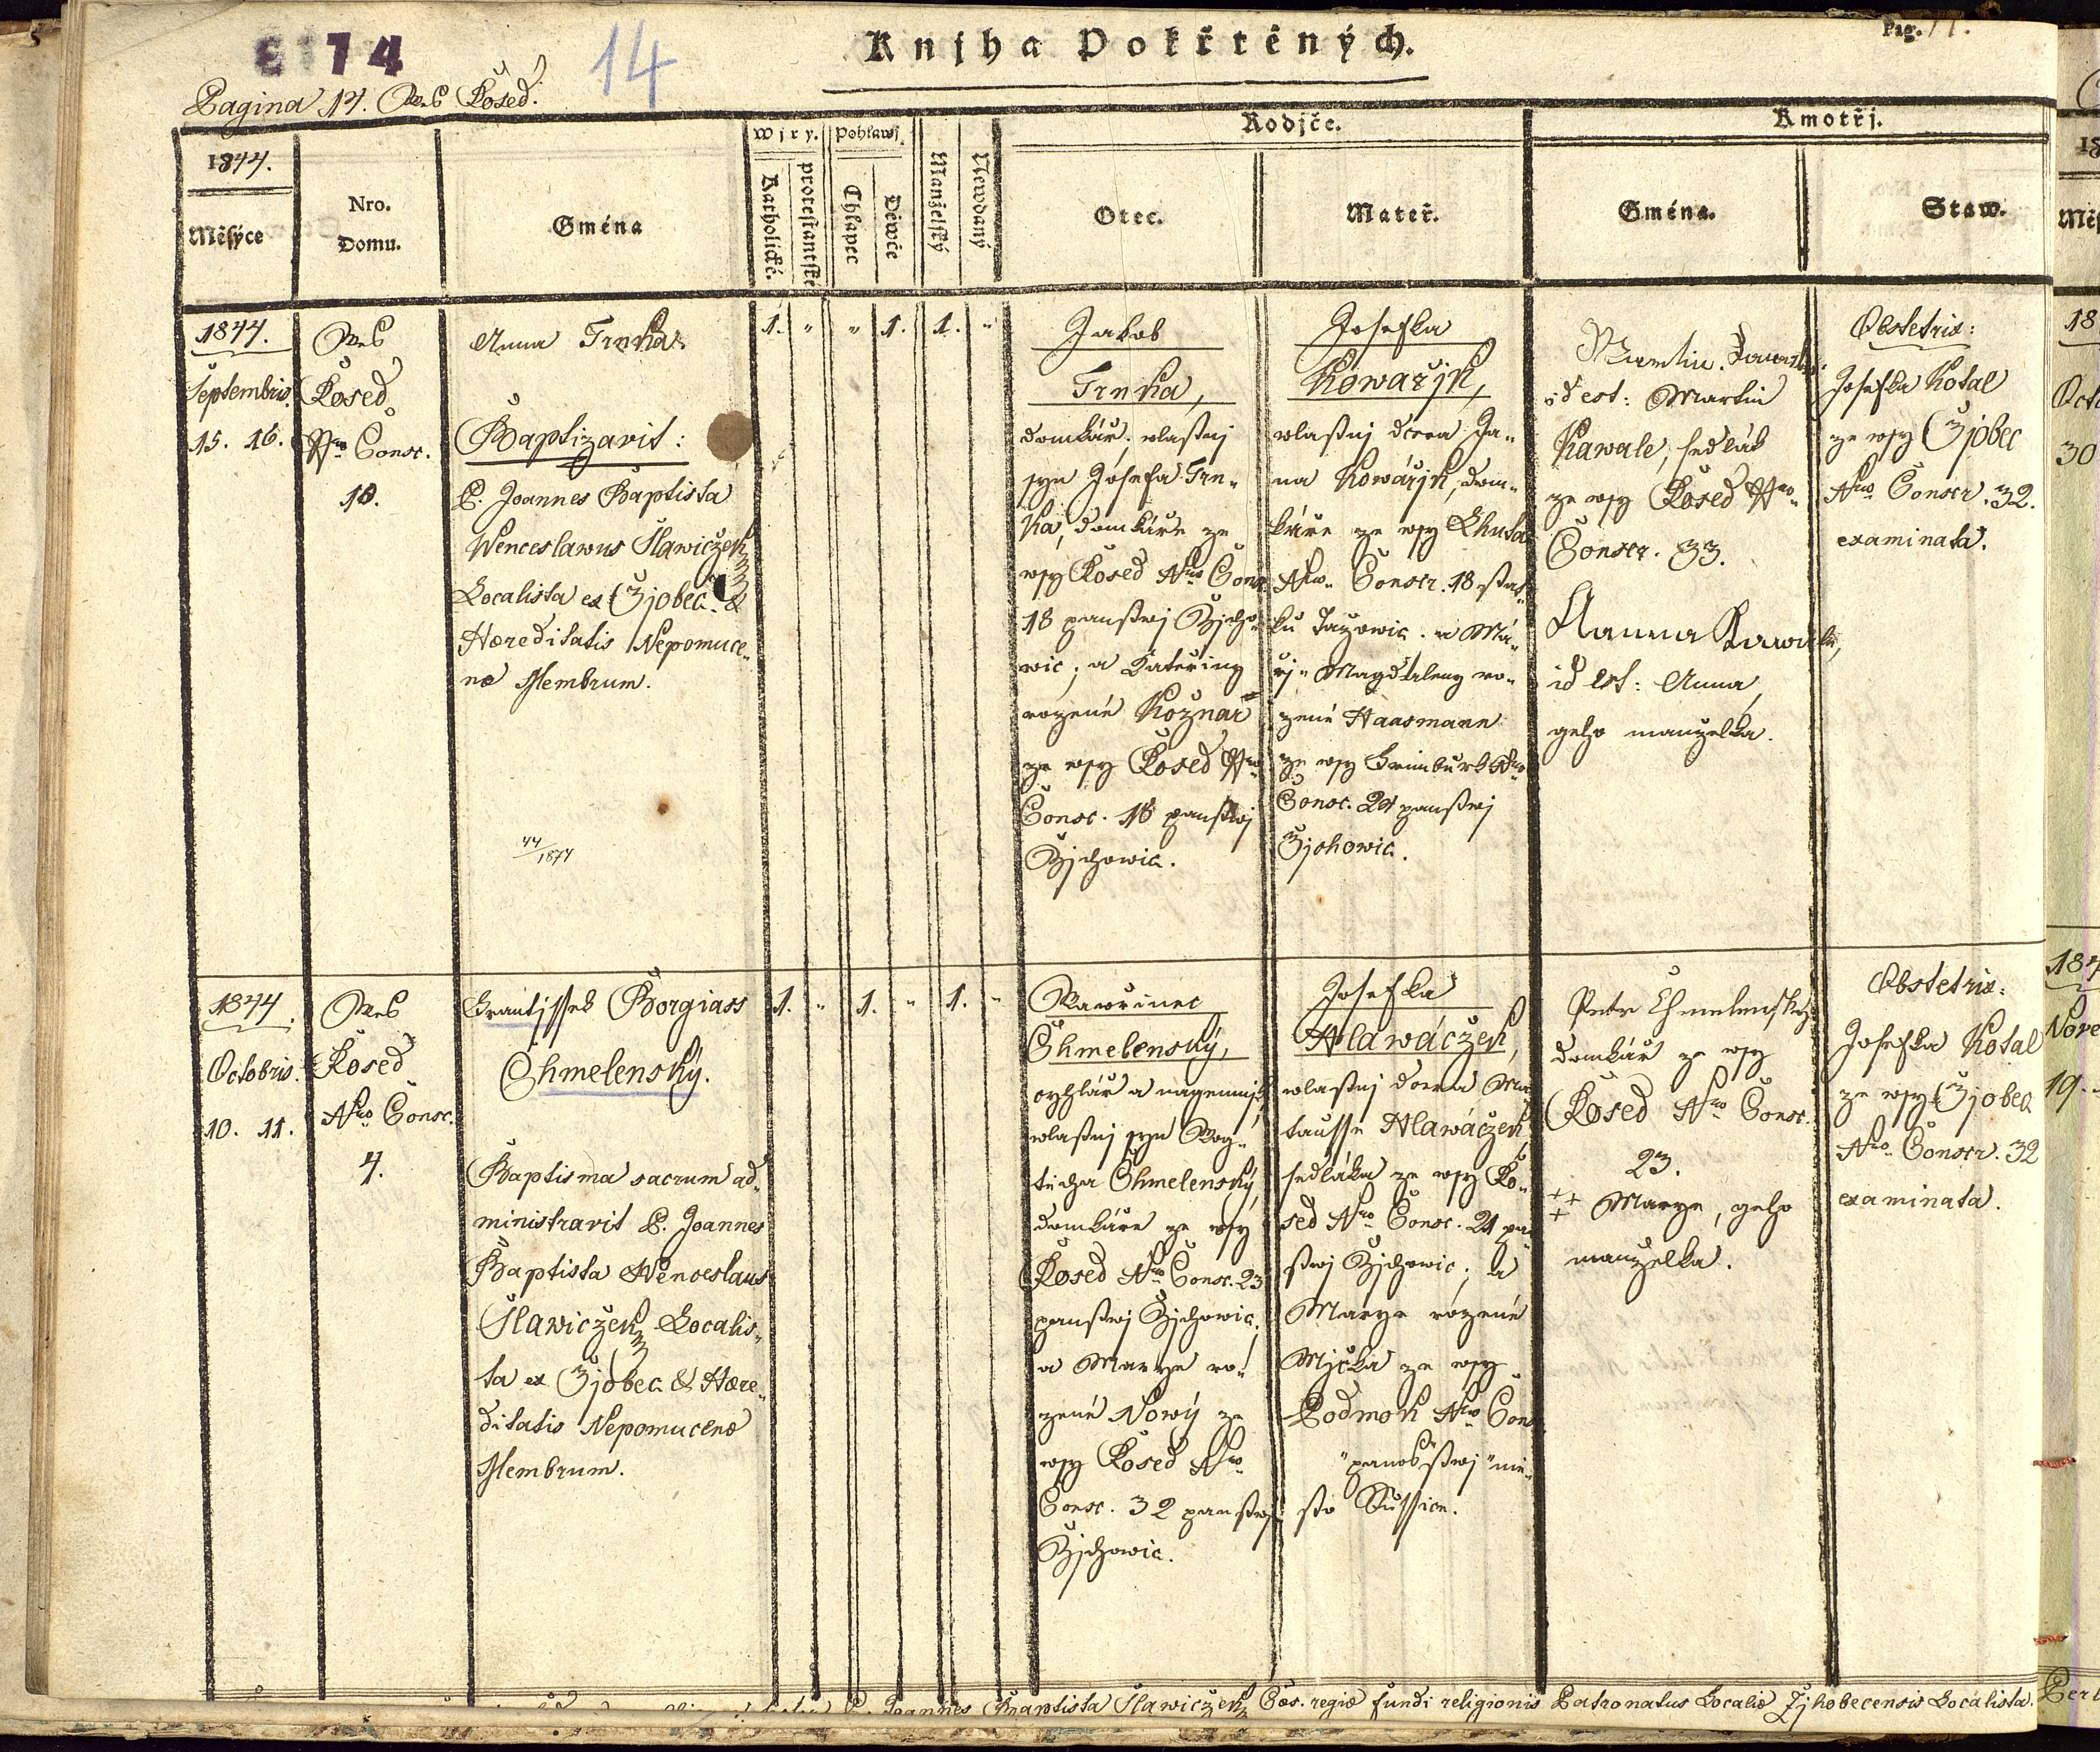 E 174
14
Knjha Pokřtěných.
Pag. 14.
Pagina 14. Wes Kosed.
1844.
Měsýce
Nro.
Domu.
Gména
Wjry.
Katholické.
protestantské
Pohlawj.
Chlapec
Děwče
Manželský
Newdaný
Rodiče.
Otec.
Mateř.
Kmotři.
Gména.
Staw.
1844.
Septembris.
15. 16.
Wes
Kosed
Nro Consc.
18.
Anna Trnka.
Baptizavit:
P. Joannes Baptista
Wenceslawus Slawiczek
Localista ex Zjobec &
Hæreditatis Nepomuce-
næ Membrum.
44/1874
1. " " 1. 1. "
Jakob
Trnka,
domkář, wlastnj
syn Josefa Trn-
ka, domkáře ze
wsy Kosed Nro Consc.
18 panstwj Žjcho-
wic; a Kateřiny
rozené Kožnar
ze wsy Kosed Nro
Consc. 16 panstwj
Žjchowic.
Josefka
Kowařjk,
wlastnj dcera Ja-
na Kowářjk, dom-
káře ze wsy Lhuta
Nro. Conscr. 18 stat-
ku . a Ma-
ři- Magdaleny ro-
zené Haasmann
ze wsy Nro
Consc. 24 panstwj
Žjchowic.
Martin
id est: Martin
Kawale, sedlák
ze wsy Kosed Nro-
Conscr. 33.
Anna Kawale,
id est: Anna,
geho manželka.
Obstetrix:
Josefka Kotal
ze wsy Zjobec
Nro Conscr. 32.
examinata.
1844.
Octobris.
10. 11.
Wes
Kosed
Nro Consc.
4.
Frantjssek Borgiass
Chmelenský.
Baptisma sacrum ad-
ministravit P. Joannes
Baptista Wenceslaus
Slawiczek Localis-
ta ex Zjobec & Hære-
ditatis Nepomucenæ
Membrum.
1. " 1. " 1. "
Wawřinec
Chmelenský,
a nagemnjk,
wlastnj syn Wog-
těcha Chmelenský,
domkáře ze wsy
Kosed Nro Consc. 23
panstwj Žjchowic.
a Marye ro-
zené Nowý ze
wsy Kosed Nro
Consc. 32 panstwj
Žjchowic.
Josefka
Hlawáczek,
wlastnj dcera Ma-
tausse Hlawáczek,
sedláka ze wsy Ko-
sed Nro Consc. 21 pan-
stwj Žjchowic; a
Marye rozené
Mjčka ze wsy
Podmok Nro Cons
" panstwj " mě-
sto Sussice.
Petr Chmelenský
domkář ze wsy
Kosed Nro Consc.
23.
+++ Marye, geho
manželka.
Obstetrix:
Josefka Kotal
ze wsy Zjobec
Nro Conscr. 32
examinata.
P. Joannes Baptista Slawiczek Cæs. regiæ fundi religionis Patronatus Localiæ Zjhobecensis Localista.